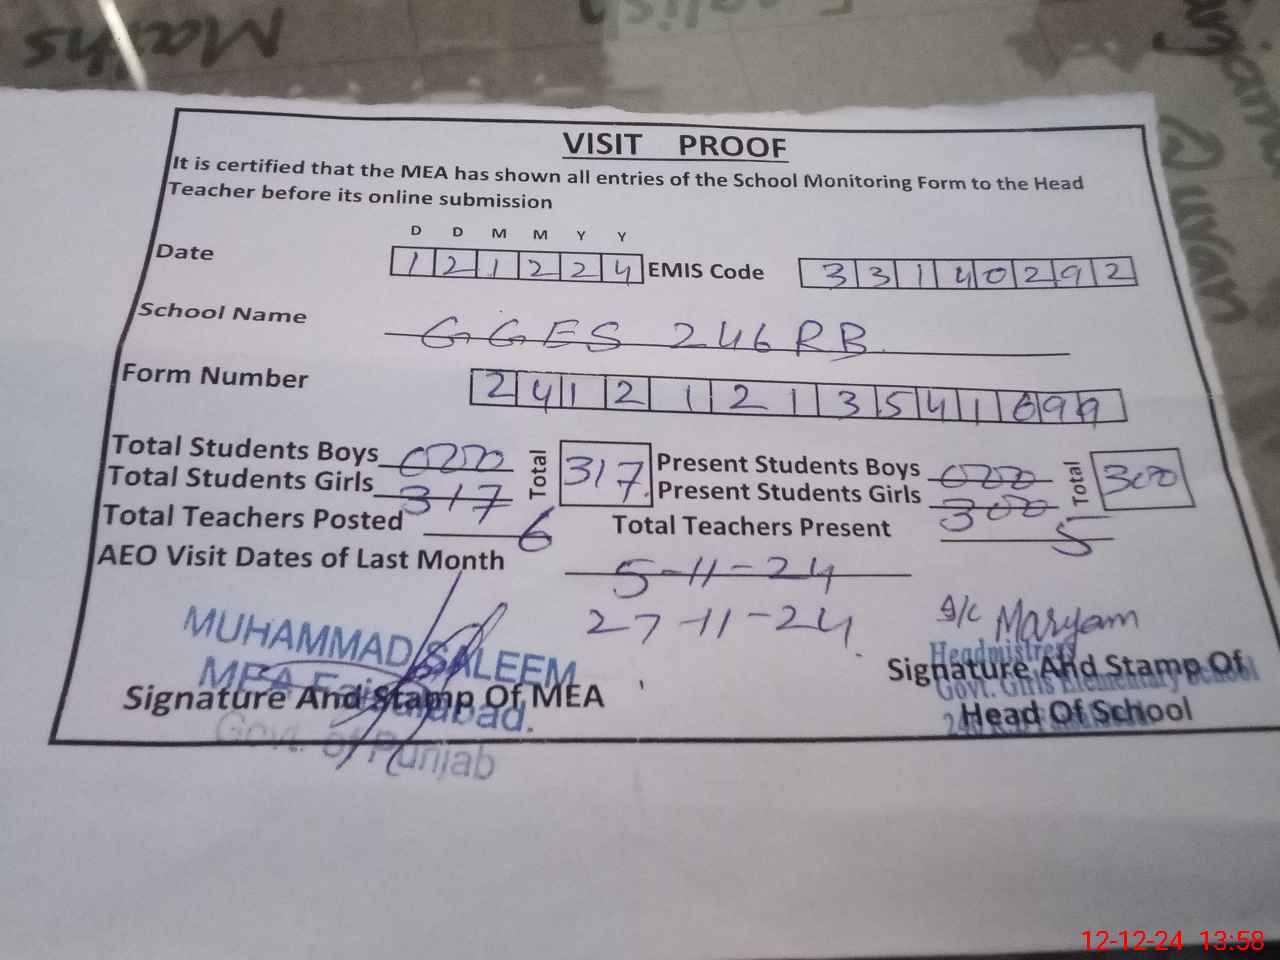 Maths
English
Quran
VISIT PROOF
It is certified that the MEA has shown all entries of the School Monitoring Form to the Head
Teacher before its online submission
D D M M Y Y
Date 1 2 1 2 2 4 EMIS Code 3 3 1 4 0 2 9 2
School Name GGES 246 RB
Form Number 2 4 1 2 1 2 1 3 5 4 1 6 9 9
Total Students Boys 000 Total 317 Present Students Boys 000 Total 300
Total Students Girls 317 Present Students Girls 300
Total Teachers Posted 6 Total Teachers Present 5
AEO Visit Dates of Last Month 5-11-24
27-11-24.
I/C Maryam
MUHAMMAD SALEEM
MEA Faisalabad.
Govt. of Punjab
Signature And Stamp Of MEA
Headmistress
Govt. Girls Elementary School
Signature And Stamp Of
Head Of School
12-12-24 13:58